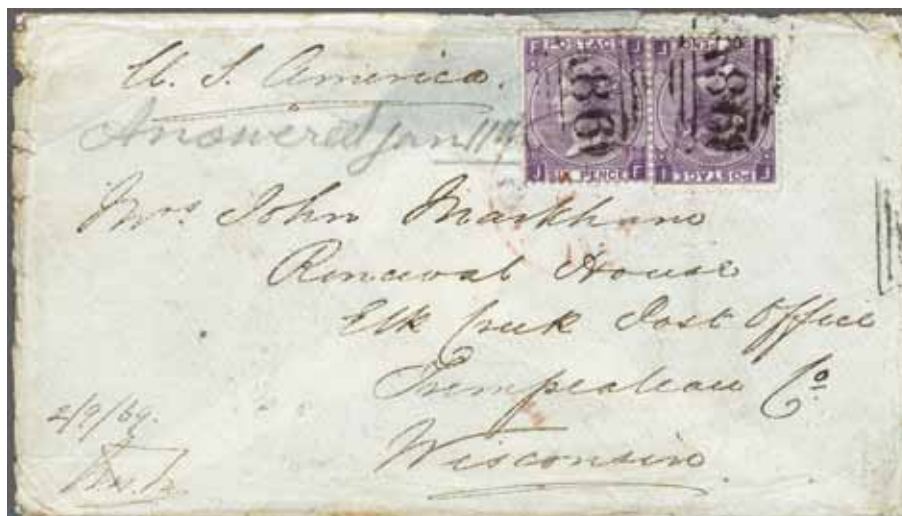 U. S. America.
Answered Jan 11
POSTAGE
SIX PENCE
J F
POSTAGE
Mrs John Markham
House
Elk Creek Post Office
Trempealeau Co.
Wisconsin
2/9/69.